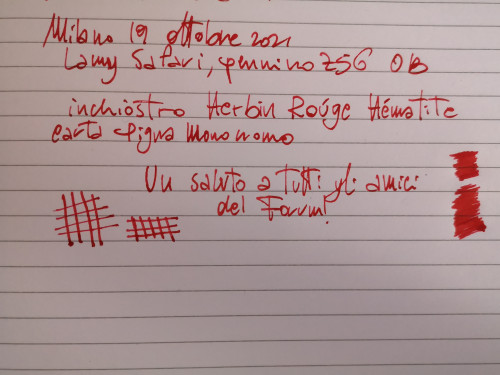 Milano 19 ottobre 2021
Lamy Safari, pennino Z56 OB
inchiostro Herbin Roúge Hématite
carta Pigna Monocromo
Un saluto a tutti gli amici
del Forum!